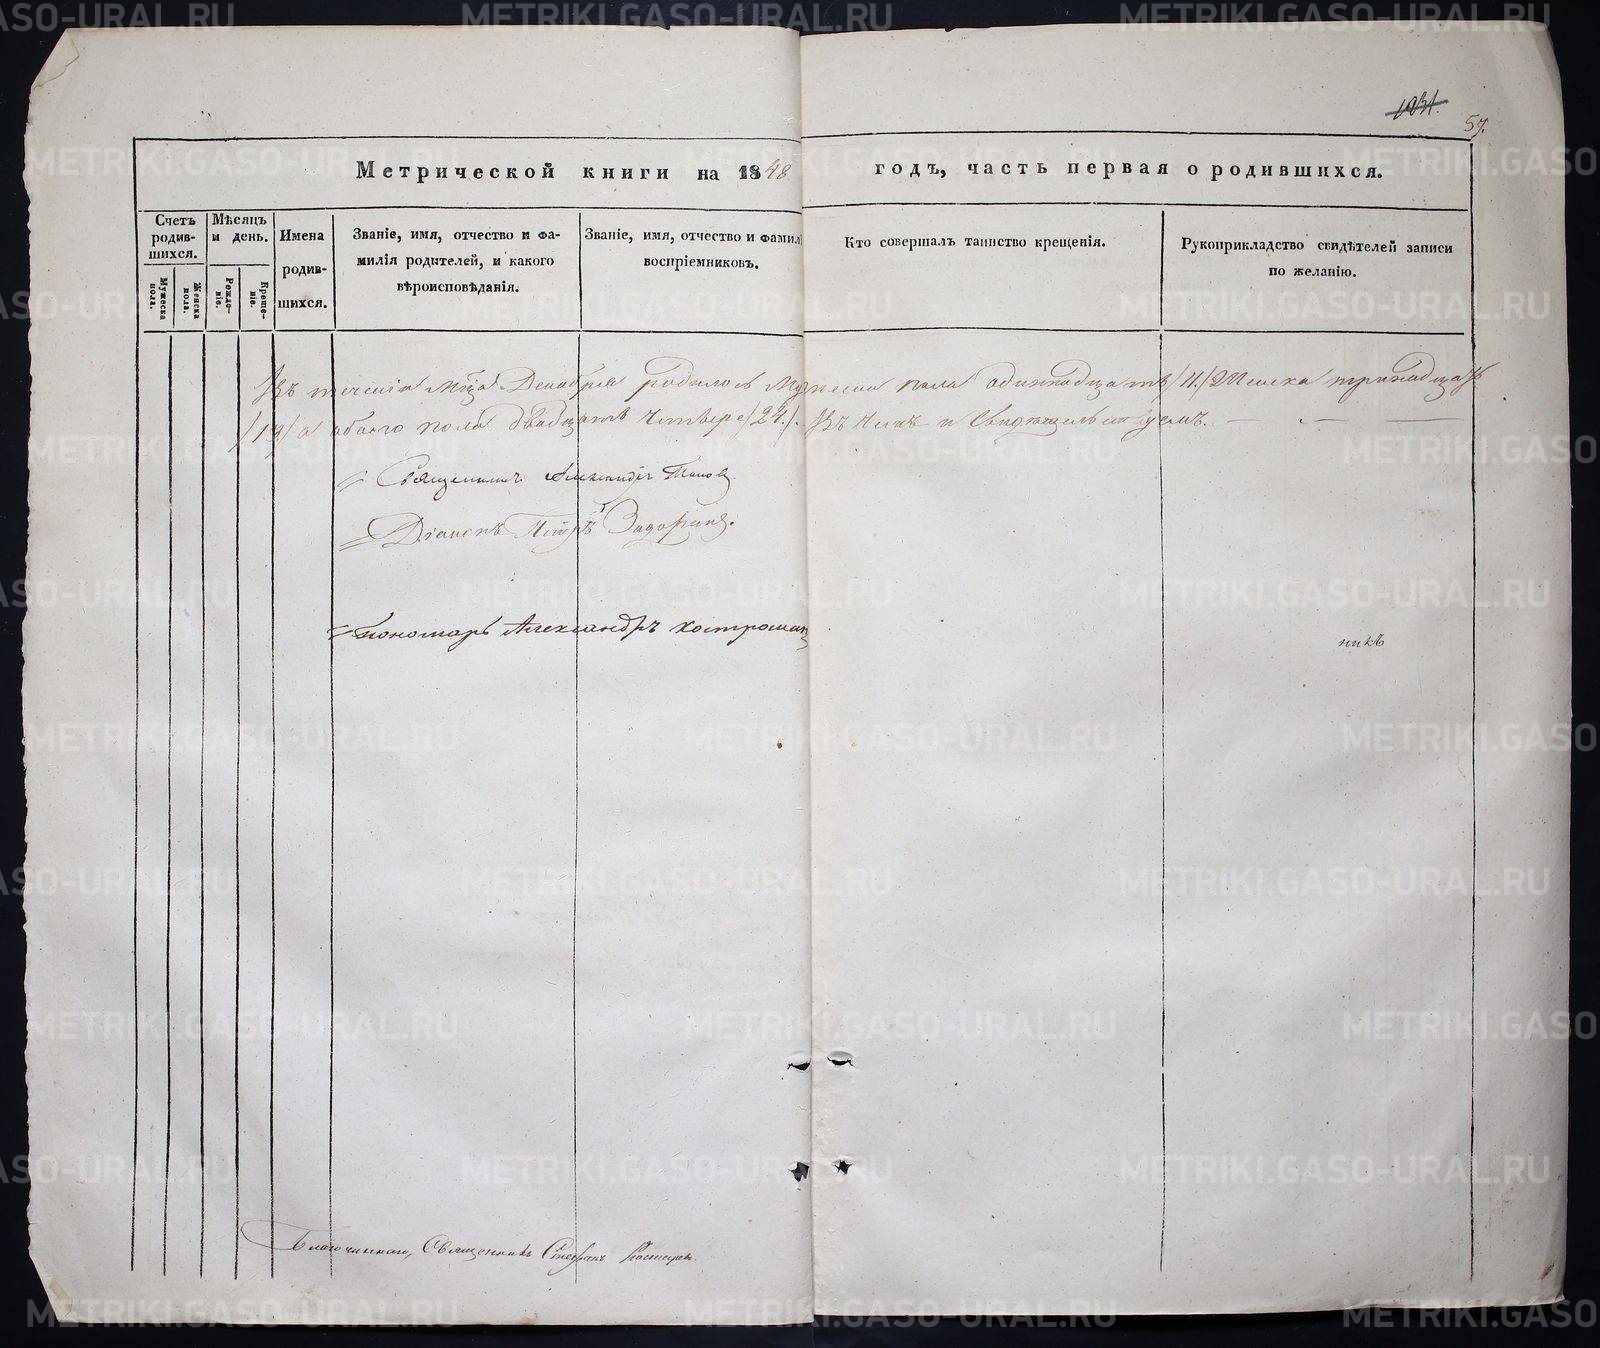 1031.
57.
Метрической книги на 1848 годъ, часть первая о родившихся.
Счетъ родив-шихся.
Мужеска пола.
Женска пола.
Мѣсяцъ и день.
Рожде-нiе.
Креще-нiе.
Имена родив-шихся.
Званiе, имя, отчество и фа-
милiя родителей, и какого
вѣроисповѣданiя.
Званiе, имя, отчество и фамил
воспрiемниковъ.
Кто совершалъ таинство крещенiя.
Рукоприкладство свидѣтелей записи
по желанiю.
Въ теченiи Мца Декабря родилось Мужеска пола одиннадцать /11./ Женска тринадцать
/13/ а обоего пола двадцать четыре /24./. Въ чемъ и свидѣтельствуемъ.
Священникъ Александръ Поповъ.
Дiаконъ Петръ
Пономарь Александръ Костроминъ
никъ
Благочинный, Священникъ Стефанъ
METRIKI.GASO-URAL.RU